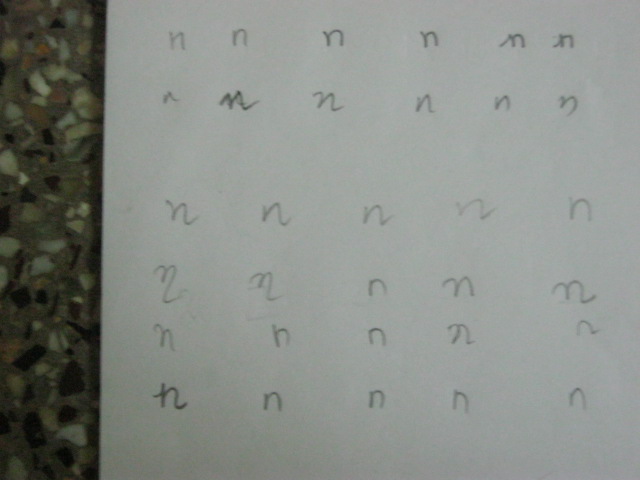 n n n n n n
n n n n n n
n n n n n
n n n n n
n n n n n
n n n n n